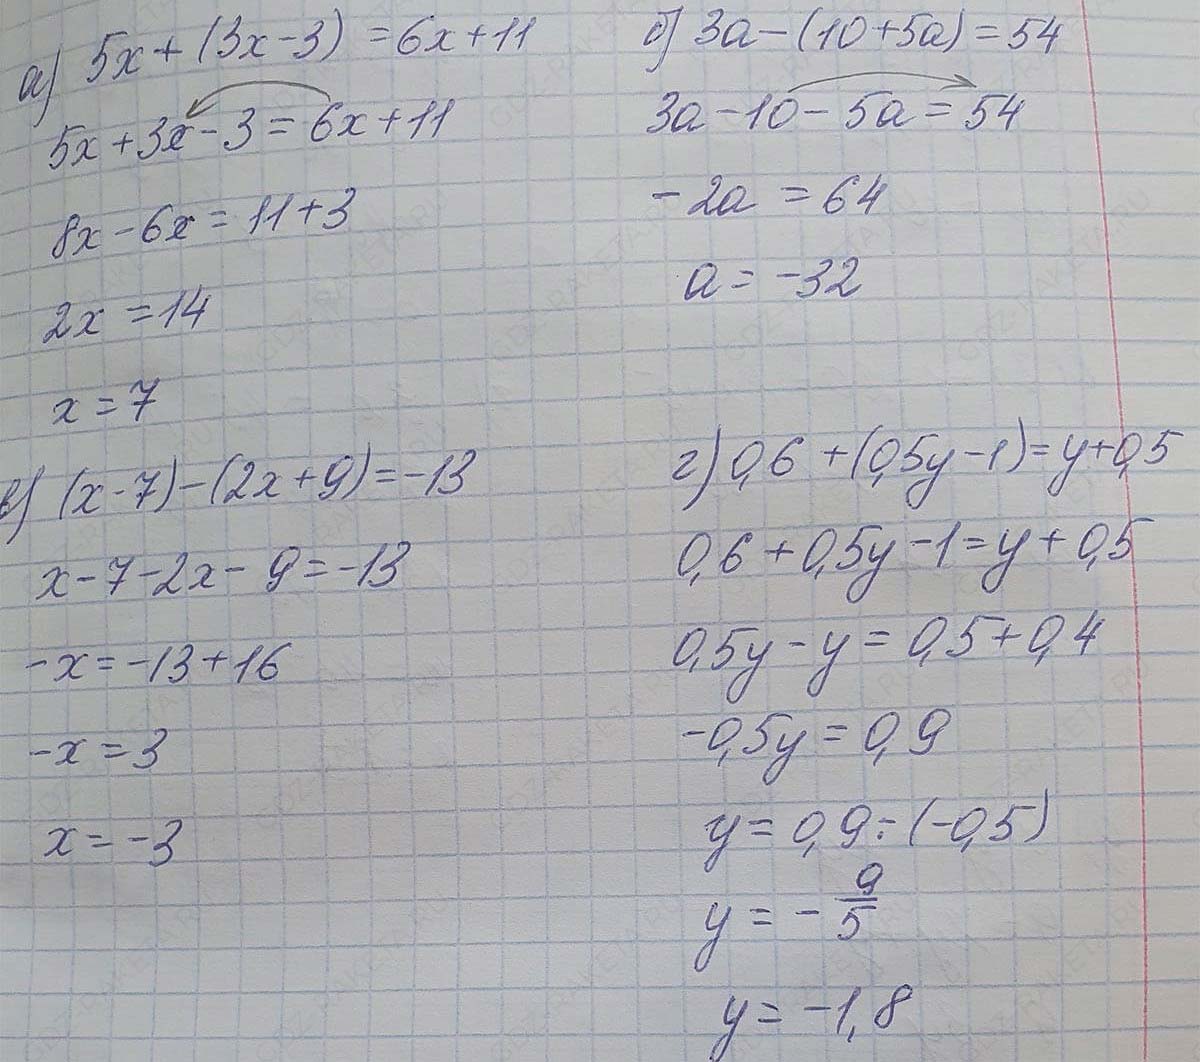 а) 5x + (3x - 3) = 6x + 11
5x + 3x - 3 = 6x + 11
8x - 6x = 11 + 3
2x = 14
x = 7
б) 3a - (10 + 5a) = 54
3a - 10 - 5a = 54
-2a = 64
a = -32
в) (x - 7) - (2x + 9) = -13
x - 7 - 2x - 9 = -13
-x = -13 + 16
-x = 3
x = -3
г) 0,6 + (0,5y - 1) = y + 0,5
0,6 + 0,5y - 1 = y + 0,5
0,5y - y = 0,5 + 0,4
-0,5y = 0,9
y = 0,9 : (-0,5)
y = - 9/5
y = -1,8
GDZ-RAKETA.RU